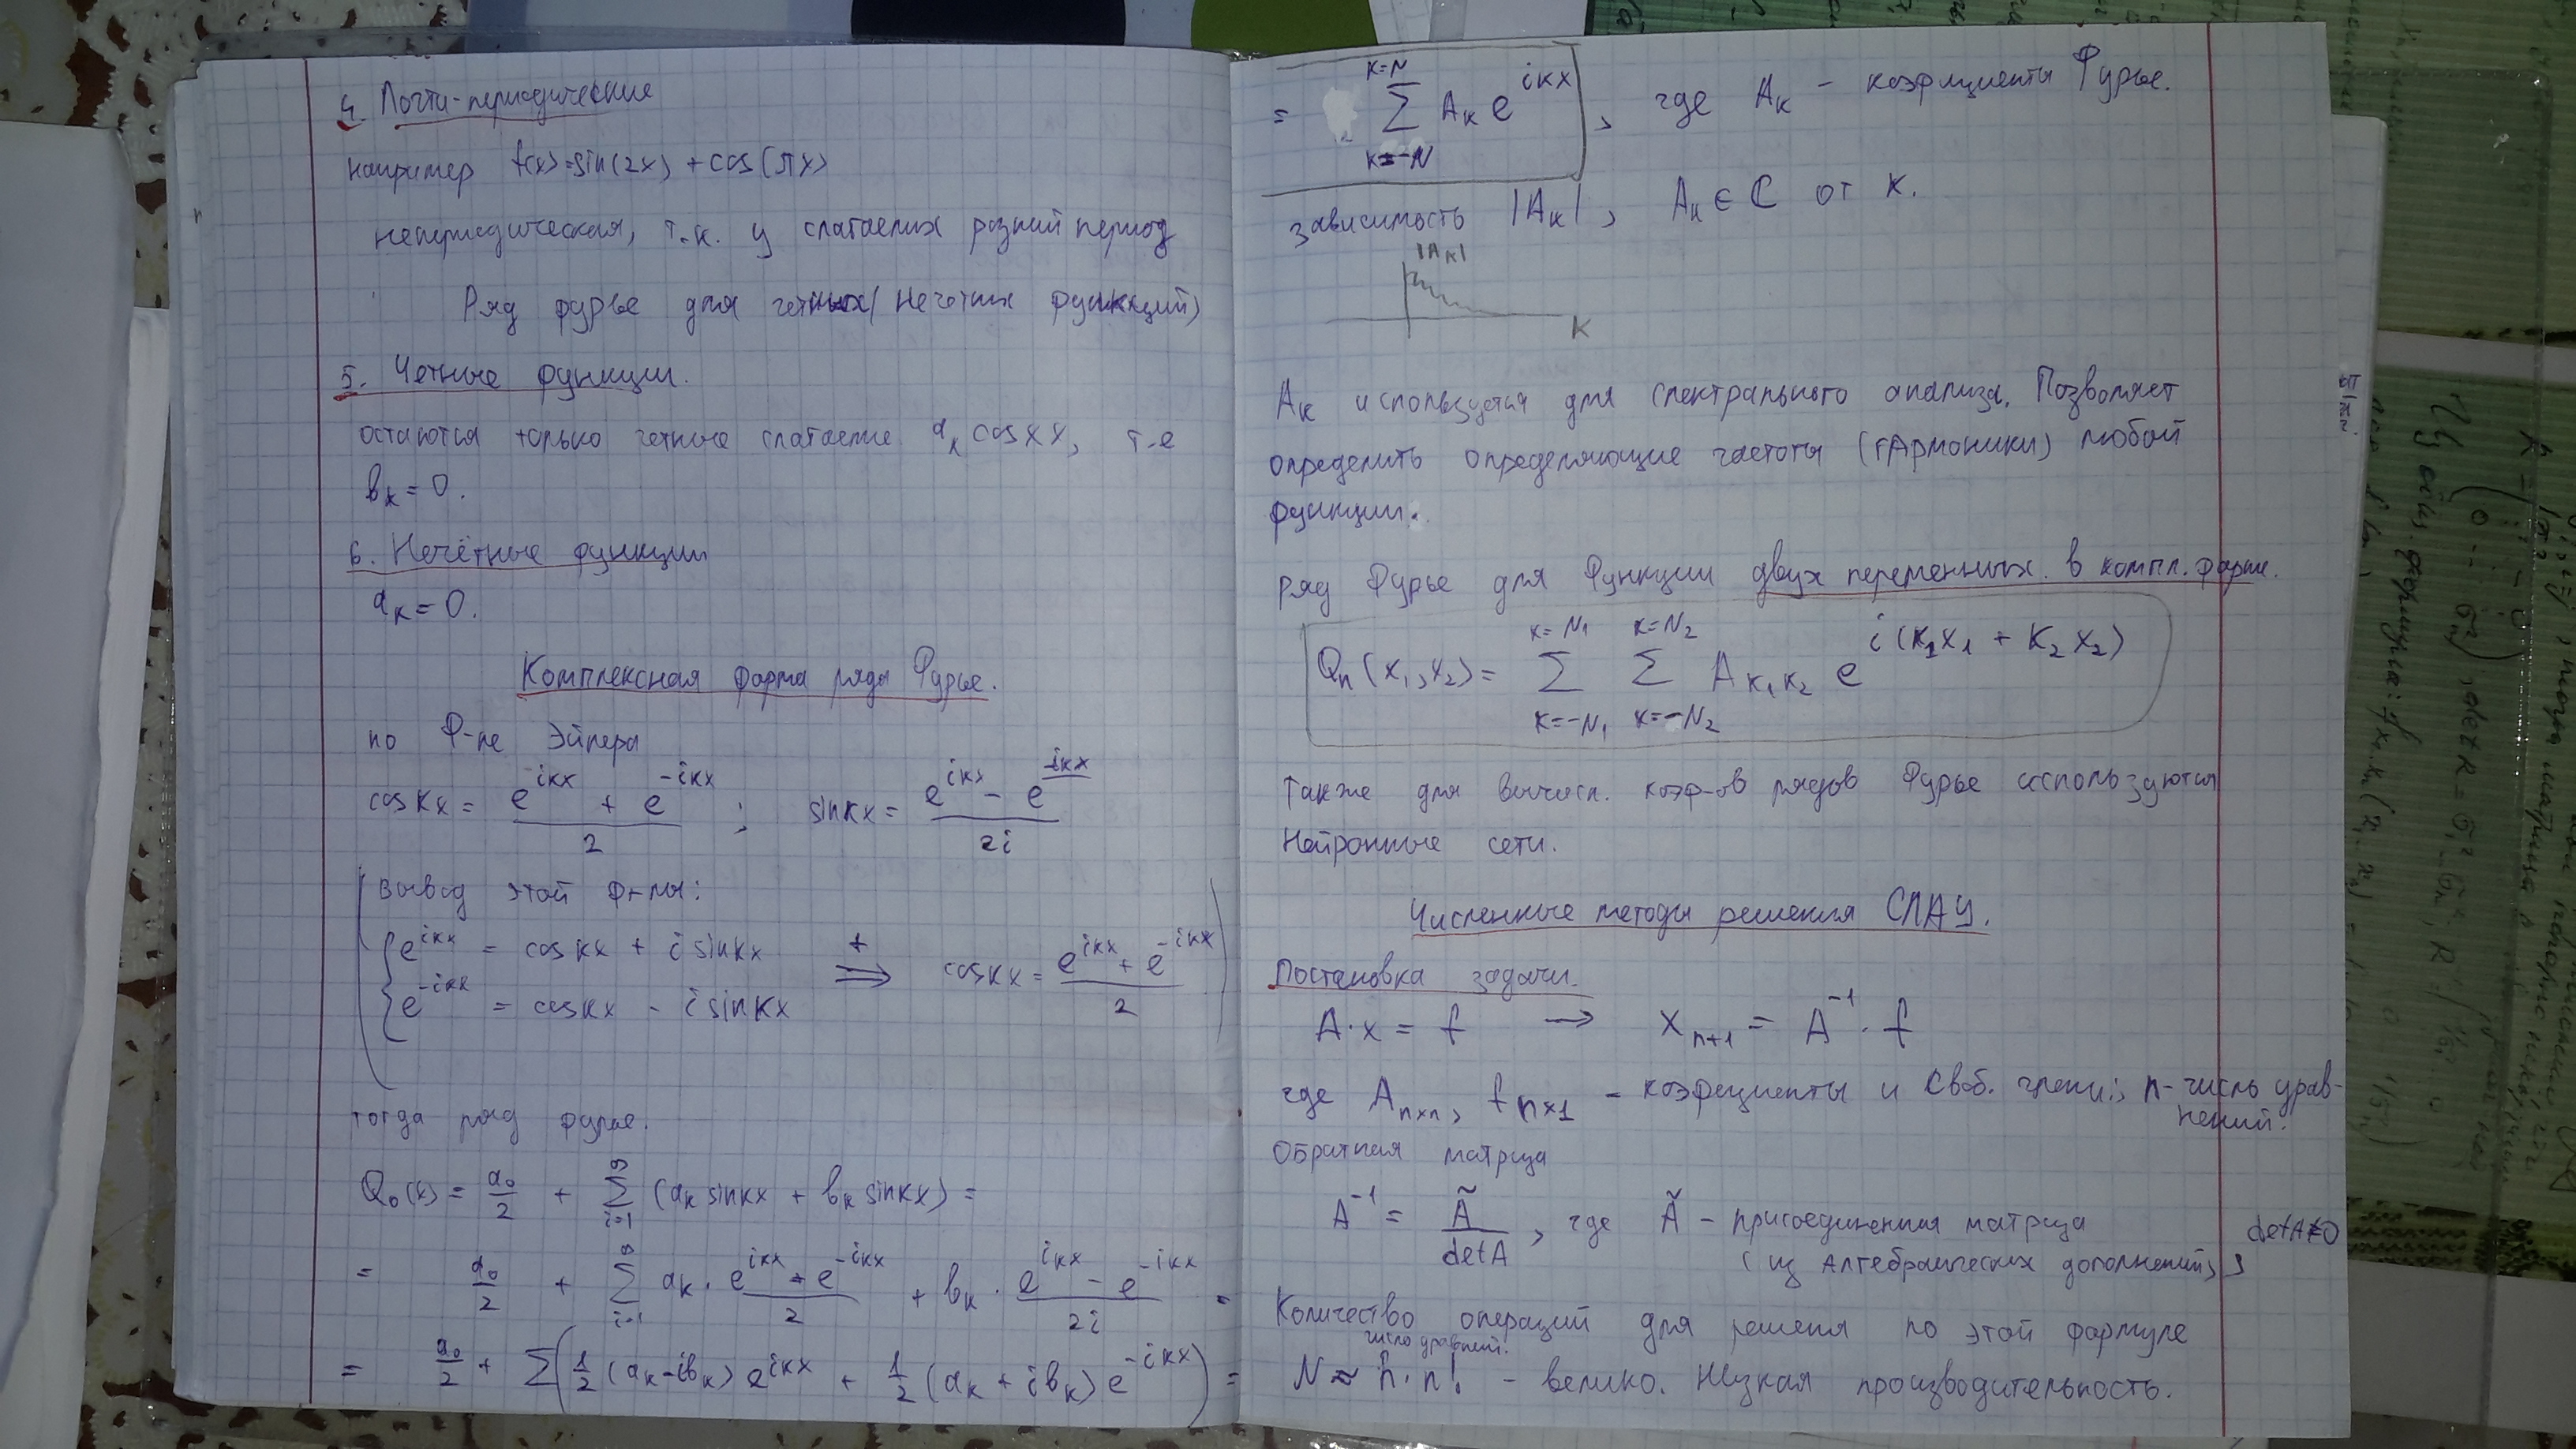 4. Почти-периодические
например f(x)=sin(2x) + cos(πx)
непериодическая, т.к. у слагаемых разный период
Ряд фурье для четных/нечетных функций)
5. Четные функции.
остаются только четные слагаемые a_k cos kx, т-е
b_k = 0.
6. Нечётные функции
a_k = 0.
Комплексная форма ряда Фурье.
по Ф-ле Эйлера
cos kx = (e^{ikx} + e^{-ikx})/2 ; sin kx = (e^{ikx} - e^{-ikx})/2i
(Вывод этой Ф-лы:
{ e^{ikx} = cos kx + i sin kx
{ e^{-ikx} = cos kx - i sin kx + ⟹ cos kx = (e^{ikx} + e^{-ikx})/2 )
тогда ряд фурье.
Q_0(x) = a_0/2 + ∑_{i=1}^{∞} (a_k sin kx + b_k sin kx) =
= a_0/2 + ∑_{i=1}^{∞} a_k · (e^{ikx} + e^{-ikx})/2 + b_k · (e^{ikx} - e^{-ikx})/2i =
= a_0/2 + ∑ (1/2 (a_k - ib_k) e^{ikx} + 1/2 (a_k + ib_k) e^{-ikx}) =
= ∑_{k=-N}^{k=N} A_k e^{ikx}, где A_k - коэфициенты Фурье.
зависимость |A_k|, A_k ∈ C от k.
|A_k|
k
A_k используется для спектрального анализа. Позволяет
определить определяющие частоты (гармоники) любой
функции.
Ряд Фурье для функции двух переменных в компл. форме.
Q_n(x_1, x_2) = ∑_{k=-N_1}^{k=N_1} ∑_{k=-N_2}^{k=N_2} A_{k_1 k_2} e^{i(k_1 x_1 + k_2 x_2)}
Также для вычисл. коэф-ов рядов Фурье используются
Нейронные сети.
Численные методы решения СЛАУ.
Постановка задачи.
A·x = f → x_{n+1} = A^{-1} · f
где A_{n×n}, f_{n×1} - коэфициенты и своб. члены; n-число урав-
нений.
Обратная матрица
A^{-1} = Ã/det A, где Ã - присоединенная матрица
(из алгебраических дополнений), det A≠0
Количество операций для решения по этой формуле
число уравнений.
N ≈ n · n! - велико. Низкая производительность.